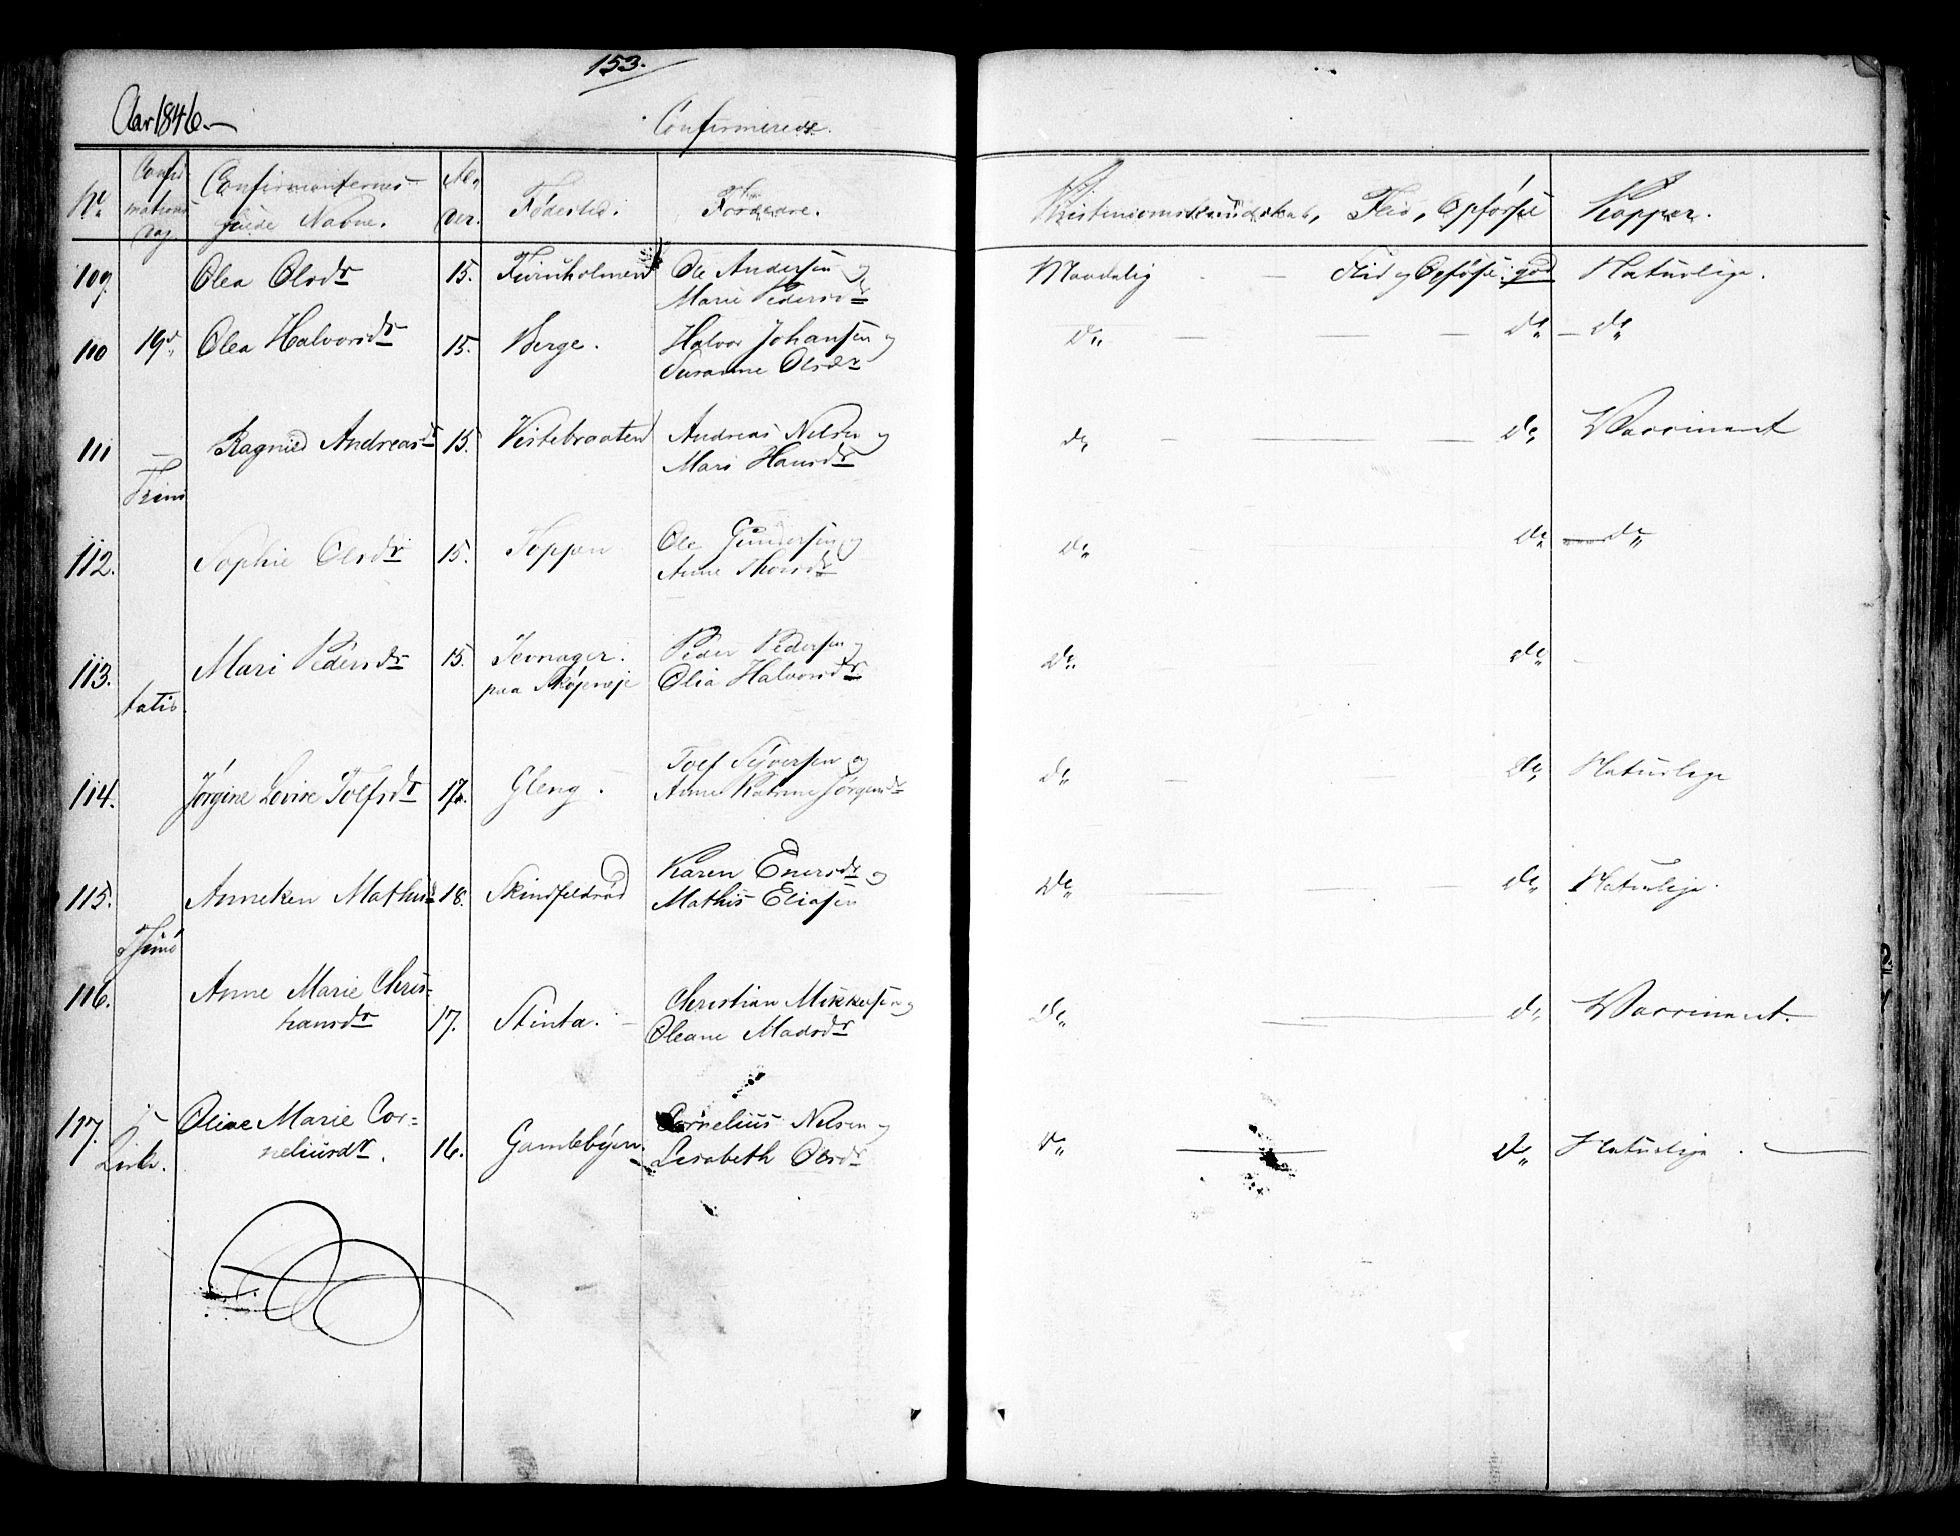 153.
Aar 1846.
Confirmerede.
No.
Confirmations Dag.
Confirmanternes fulde Navne.
Alder.
Fødested.
Forældre.
Kristendomskundskab, Flid, Opførsel
Kopper.
109. Olea Olsdr 15. Furuholmen Ole Andersen og Maadelig — Flid og Opførsel god Naturlige.
Marie Pedersdr
110 19d Olea Halvorsdr 15. Berge. Halvor Johansen og do — — — do — do
Susanne Olsdr
111 Ragnild Andreasdr 15. Vestebraaten Andreas Nilsen og do — — — do Vaccineret
Mari Hansdr
Trini
112. Sophie Olsdr 15. Toppen Ole Gundersen og do — do — do
Anne Thorsdr
113. Mari Pedersdr 15. Jevnager. Peder Pedersen og do do -
paa Skøjeneje Olia Halvorsdr
tatis.
114. Jørgine Lovise Tolfsdr 17. Gleng. Tolf Syversen og do — — do Naturlige
Anne Katrine Jørgensdr
115. Anneken Mathisdr 18. Skindfeldrød Karen Enersdr og do — — do Naturlige.
Mathis Eliasen
116. Anne Marie Chris-
tiansdr 17. Stinta. Christian Mikkelsen og do — do Vaccineret.
Oleane Madsdr
117. Oline Marie Cor=
neliusdr. 16. Gamlebyen Cornelius Nilsen og do — do Naturlige. —
Lisabeth Olsdr